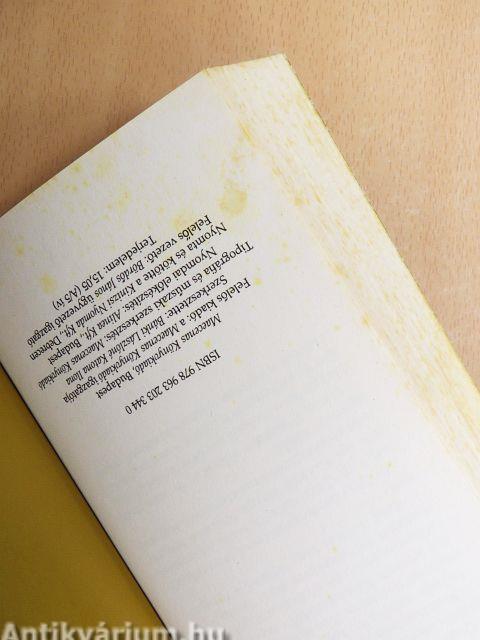 ISBN 978 963 203 344 0
Maecenas Könyvkiadó, Budapest
Felelős kiadó: a Maecenas Könyvkiadó igazgatója
Szerkesztette: Bánki Lászlóné Katona Ilona
Tipográfia és műszaki szerkesztés: Maecenas Könyvkiadó
Nyomdai előkészítés: Almar Kft., Budapest
Nyomta és kötötte a Kinizsi Nyomda Kft., Debrecen
Felelős vezető: Bördős János ügyvezető igazgató
Terjedelem: 15,05 (A/5 ív)
Antikvárium.hu